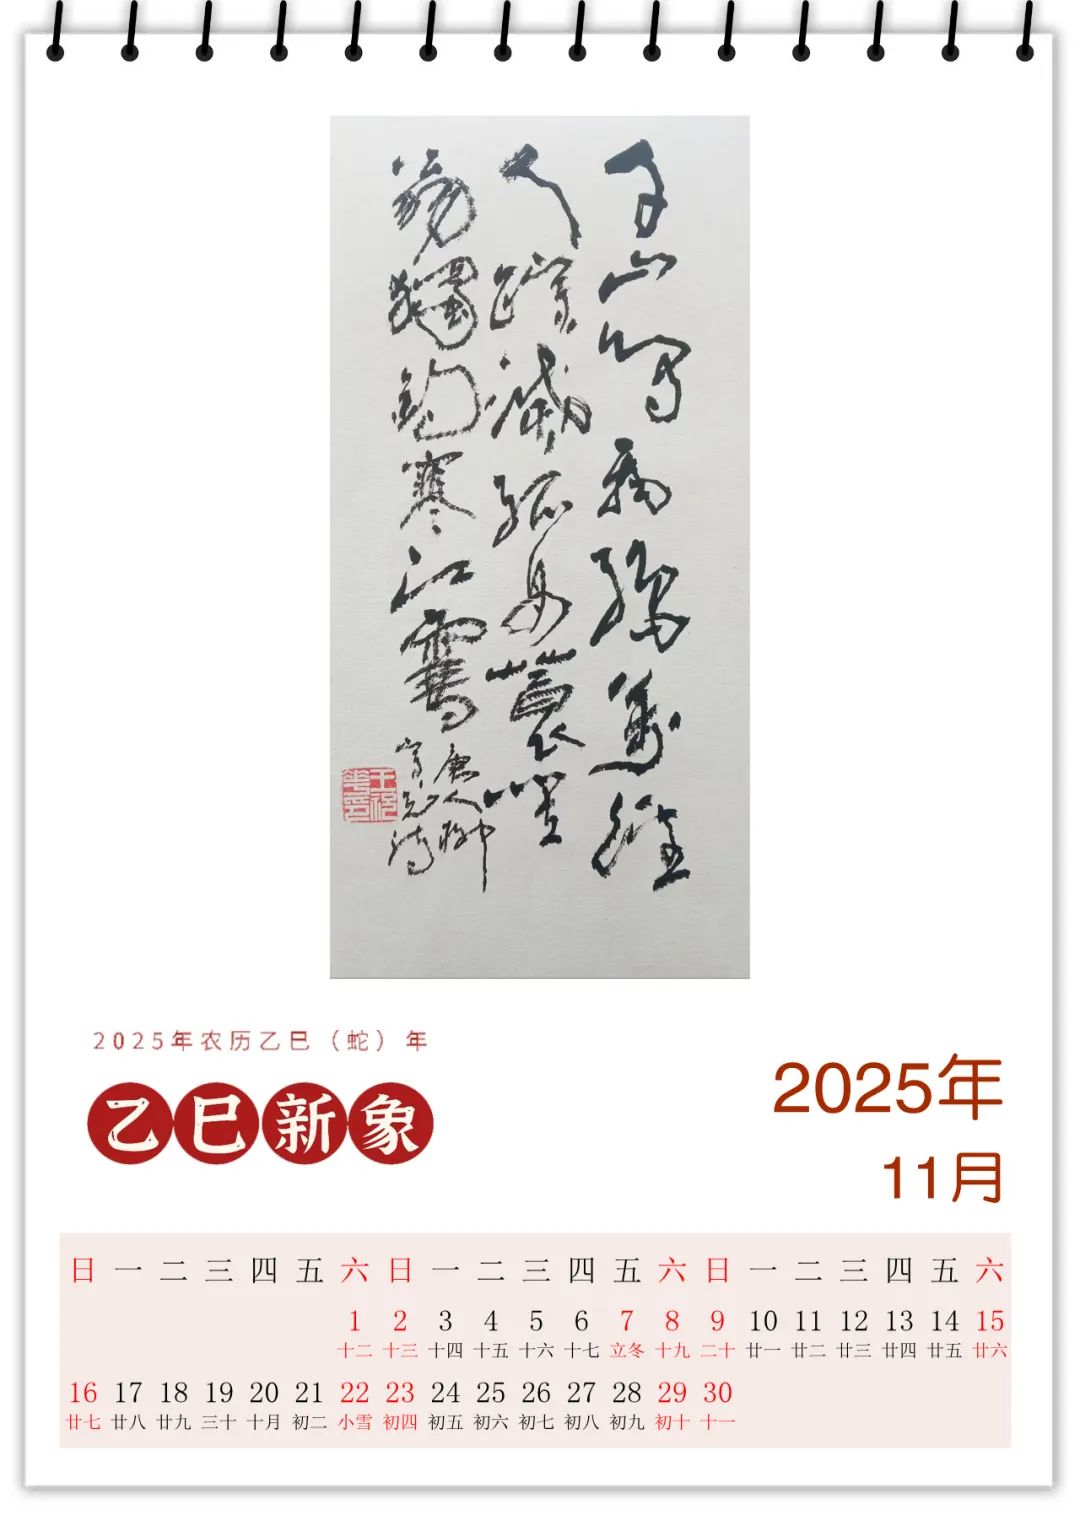 千山鳥飛絕萬徑
人蹤滅孤舟蓑笠
翁獨釣寒江雪
唐人柳
宗元詩
2025年农历乙巳（蛇）年
乙巳新象
2025年
11月
日 一 二 三 四 五 六 日 一 二 三 四 五 六 日 一 二 三 四 五 六
1 2 3 4 5 6 7 8 9 10 11 12 13 14 15
十二 十三 十四 十五 十六 十七 立冬 十九 二十 廿一 廿二 廿三 廿四 廿五 廿六
16 17 18 19 20 21 22 23 24 25 26 27 28 29 30
廿七 廿八 廿九 三十 十月 初二 小雪 初四 初五 初六 初七 初八 初九 初十 十一